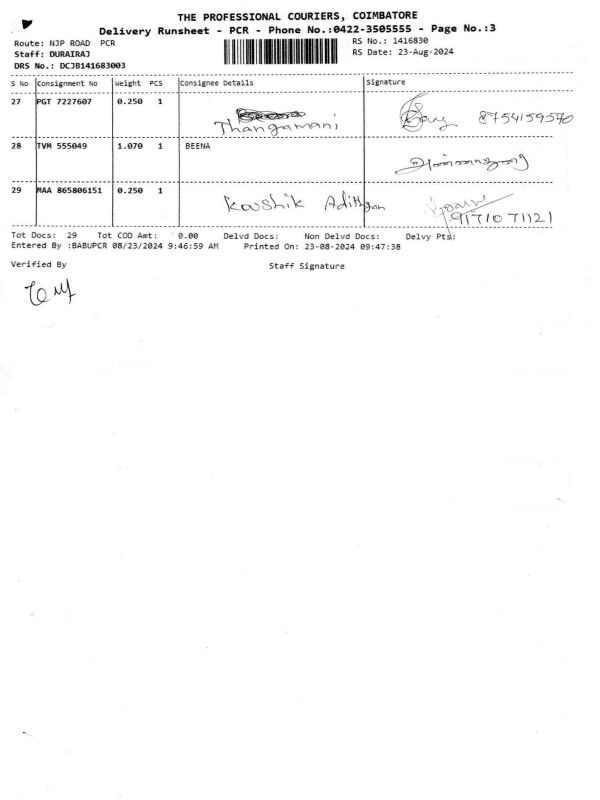 THE PROFESSIONAL COURIERS, COIMBATORE
Delivery Runsheet - PCR - Phone No.:0422-3505555 - Page No.:3
Route: NJP ROAD PCR
RS No.: 1416830
Staff: DURAIRAJ
RS Date: 23-Aug-2024
DRS No.: DCJB141683003
S No Consignment No Weight PCS Consignee Details Signature
27 PGT 7227607 0.250 1 Thangamani 8754159570
28 TVM 555049 1.070 1 BEENA
29 MAA 865806151 0.250 1 Koushik Adithyan 9171071121
Tot Docs: 29 Tot COD Amt: 0.00 Delvd Docs: Non Delvd Docs: Delvy Pts:
Entered By :BABUPCR 08/23/2024 9:46:59 AM Printed On: 23-08-2024 09:47:38
Verified By Staff Signature